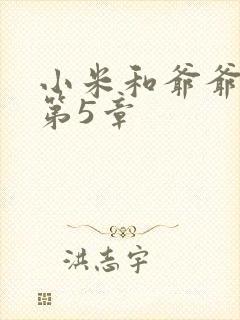 小米和爷爷
第5章
洪志宇